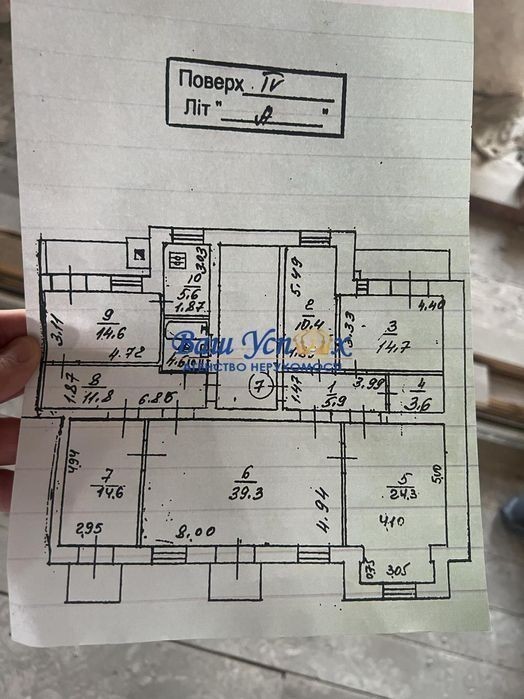 Поверх IV
Літ " А "
3.03
10
5.6
1.87
5.49
2
10.4
4.40
3.33
3
14.7
3.11
9
14.6
4.72
Ваш Успіх
АГЕНСТВО НЕРУХОМОСТІ
1.87
8
11.8
6.86
7
1.47
1
5.9
3.99
4
3.6
4.94
7
14.6
2.95
6
39.3
8.00
4.94
5
24.3
4.10
5.00
0.75
3.05